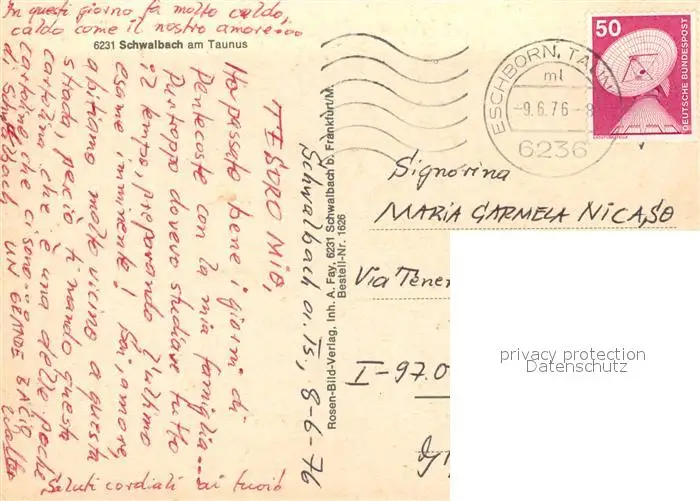 In questi giorno fa molto caldo,
caldo come il nostro amore....
6231 Schwalbach am Taunus
Schwalbach a. TS, 8-6-76
TESORO MIO,
Ho passato bene i giorni di
Pentecoste con la mia famiglia...
Purtroppo dovevo studiare tutto
il tempo, preparando l'ultimo
esame imminente! Poi, amore,
abitiamo molto vicino a questa
strada, perciò ti mando questa
cartolina che è una delle poche
cartoline che ci sono... 
di Schwalbach UN GRANDE BACIO
Walter
Saluti cordiali ai tuoi!
Rosen-Bild-Verlag, Inh. A. Fay, 6231 Schwalbach b. Frankfurt/M.
Bestell-Nr. 1626
50
DEUTSCHE BUNDESPOST
ESCHBORN, TAUN
ml
-9.6.76-8
6236
Signorina
MARIA CARMELA NICASO
Via Tene
I-97.0
privacy protection
Datenschutz